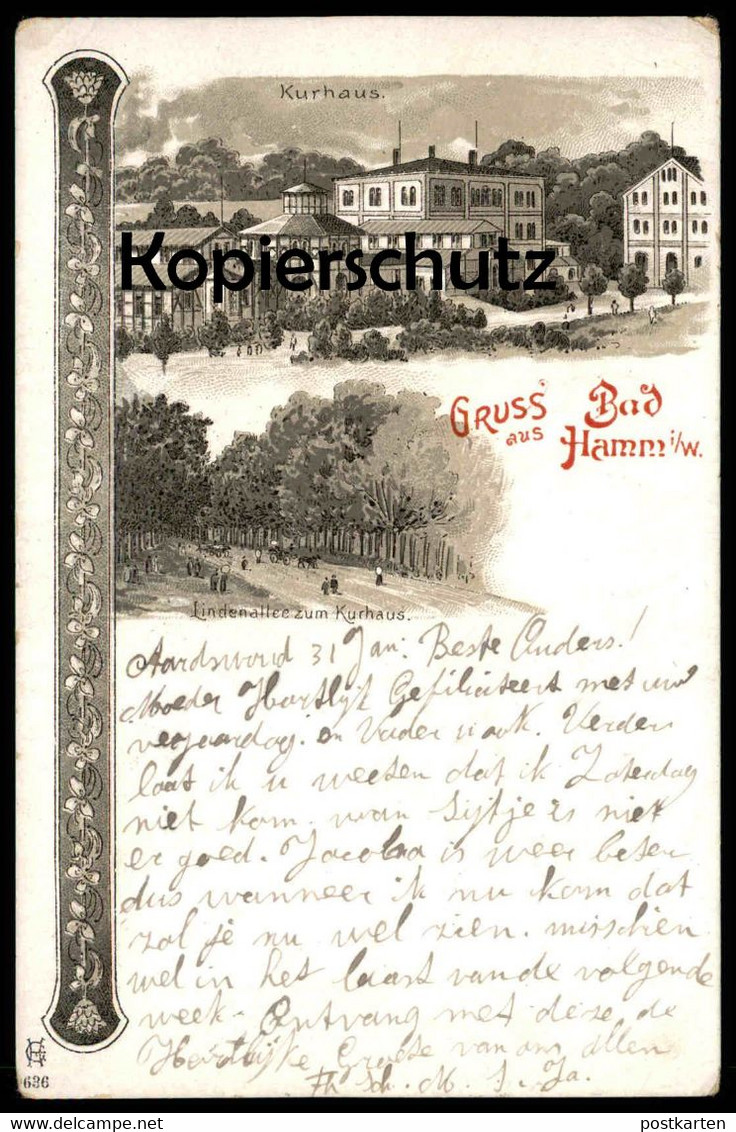 Kurhaus.
Kopierschutz
Gruss aus Bad Hamm i/W.
Lindenallee zum Kurhaus.
31 Jan: Beste Ouders!
Moeder Hartlijk Gefiliciteert met uw
verjaardag. en Vader ook. Verder
laat ik u weeten dat ik Zaterdag
niet kom. wan Sijtje is niet
er goed. Jacoba is weer beter
dus wanneer ik nu kom dat
zol je nu wel zien. misschien
wel in het laast van de volgende
week. Ontvang met deze de
Hartlijke Groete van ons allen
Sch. M. J. Ja.
636
postkarten